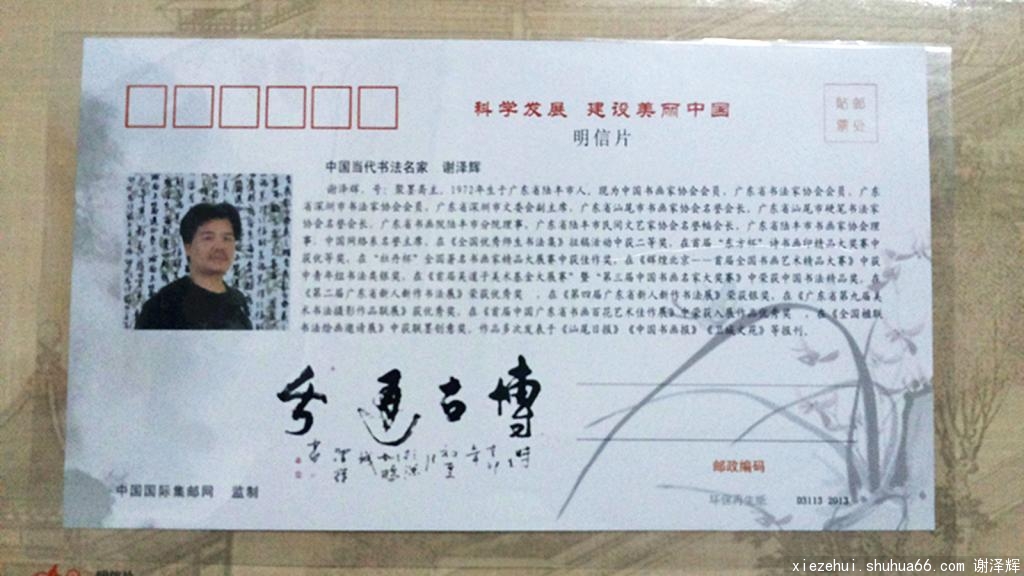 科学发展 建设美丽中国
贴 邮
票 处
明信片
中国当代书法名家 谢泽辉
谢泽辉，号：聚墨斋主，1972年生于广东省陆丰市人，现为中国书画家协会会员，广东省书法家协会会员，广东
省深圳市书法家协会会员，广东省深圳市文委会副主席，广东省汕尾市书画家协会名誉会长，广东省汕尾市硬笔书法家
协会名誉会长，广东省书画院陆丰市分院理事，广东省陆丰市民间文艺家协会名誉会长，广东省陆丰市书画家协会理
事，中国网络系名誉主席，在《全国优秀师生书法集》征稿活动中获二等奖，在首届“东方杯”诗书画印精品大奖赛中
获优等奖，在“牡丹杯”全国著名书画家精品大展赛中获佳作奖，在《辉煌北京——首届全国书画艺术精品大赛》中获
中青年组书法类银奖，在《首届吴道子美术基金大展赛》暨“第三届中国书画名家大奖赛》中荣获中国书法精品奖，在
《第二届广东省新人新作书法展》荣获优秀奖 ，在《第四届广东省新人新作书法展》荣获银奖，在《广东省第九届美
术书法摄影作品联展》获优秀奖，在《首届中国书画百花艺术佳作展》中荣获入展作品优秀奖 ，在《全国楹联
书法绘画邀请展》中获联墨创意奖，作品多次发表于《汕尾日报》《中国书画报》《卫城文苑》等报刊。
博古通今
邮政编码
中国国际集邮网 监制
环保再生纸 03113 2013
明信片
xiezehui.shuhua66.com 谢泽辉